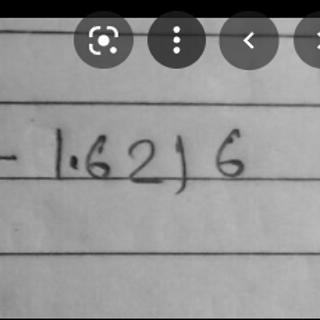 - 1.62) 6